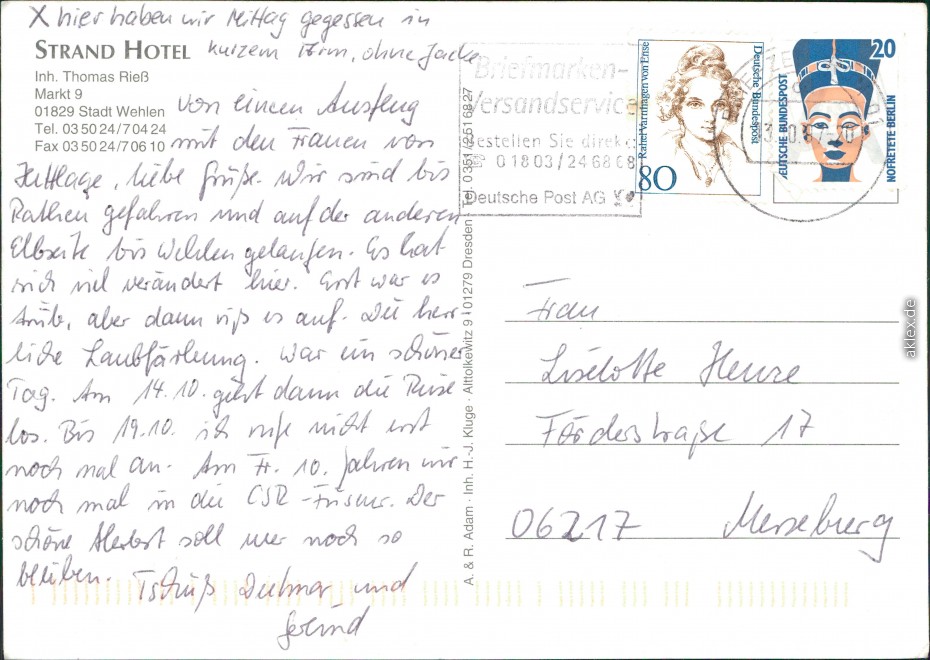 X hier haben wir Mittag gegessen in
kurzem Arm, ohne Jacke
STRAND HOTEL
Inh. Thomas Rieß
Markt 9
01829 Stadt Wehlen
Tel. 03 50 24/7 04 24
Fax 03 50 24/7 06 10
von einem Ausflug
mit den Frauen von
liebe Grüße. Wir sind bis
Rathen gefahren und auf der anderen
Elbseite bis Wehlen gelaufen. Es hat
sich viel verändert hier. Erst war es
trüb, aber dann riß es auf. Die herr
liche Laubfärbung. War ein schöner
Tag. Am 14.10. geht dann die Reise
los. Bis 19.10. ich rufe nicht erst
noch mal an. Am Fr. 10. fahren wir
noch mal in die ČSR - Friseur. Der
schöne Herbst soll nur noch so
bleiben. Tschüß Dietmar und
Gerlind
A. & R. Adam · Inh. H.-J. Kluge · Alttolkewitz 9 · 01279 Dresden · Tel. 0351/2516827
Briefmarken-
Versandservice
Bestellen Sie direkt
0 18 03 / 24 68 68
Deutsche Post AG
Rahel Varnhagen von Ense
Deutsche Bundespost
80
20
DEUTSCHE BUNDESPOST
NOFRETETE BERLIN
Frau
Liselotte Henze
Försterstraße 17
06217 Merseburg
aklex.de